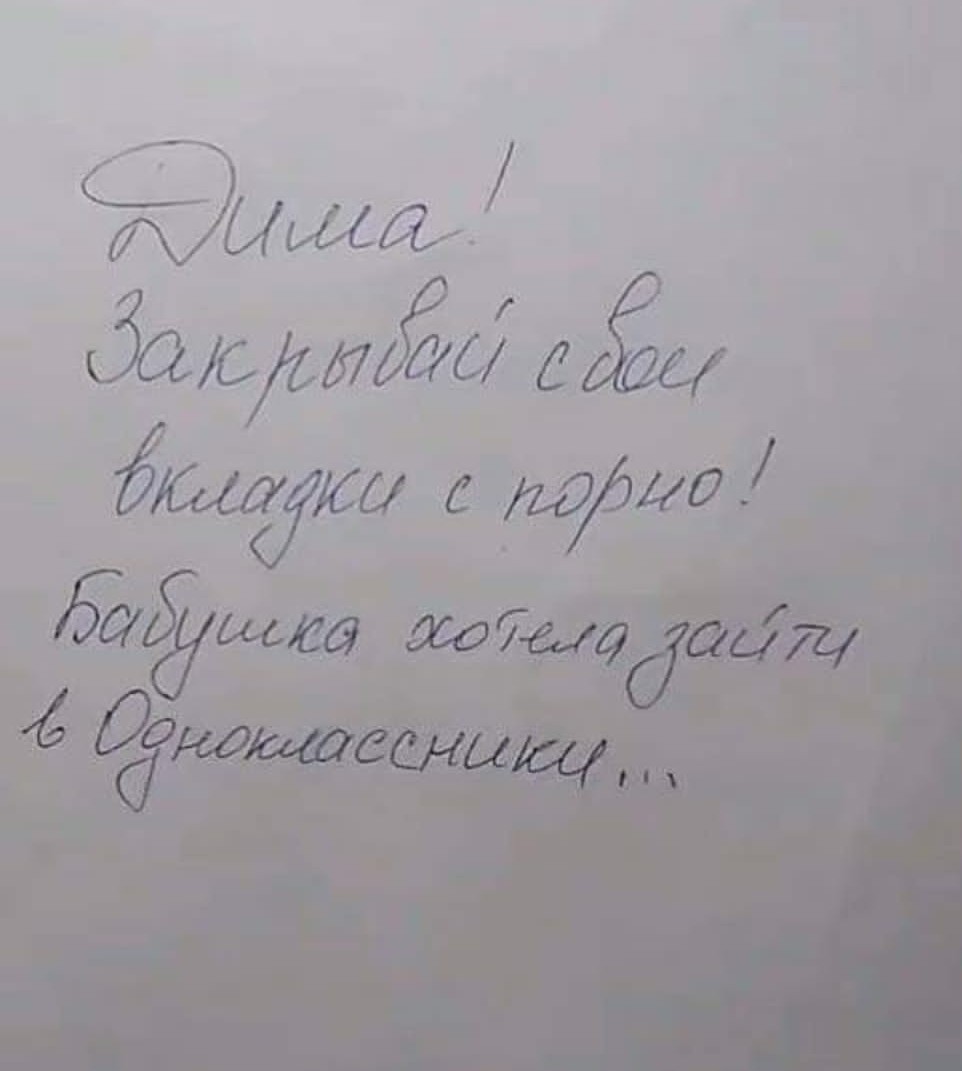 Дима!
Закрывай свои
вкладки с порно!
Бабушка хотела зайти
в Одноклассники...